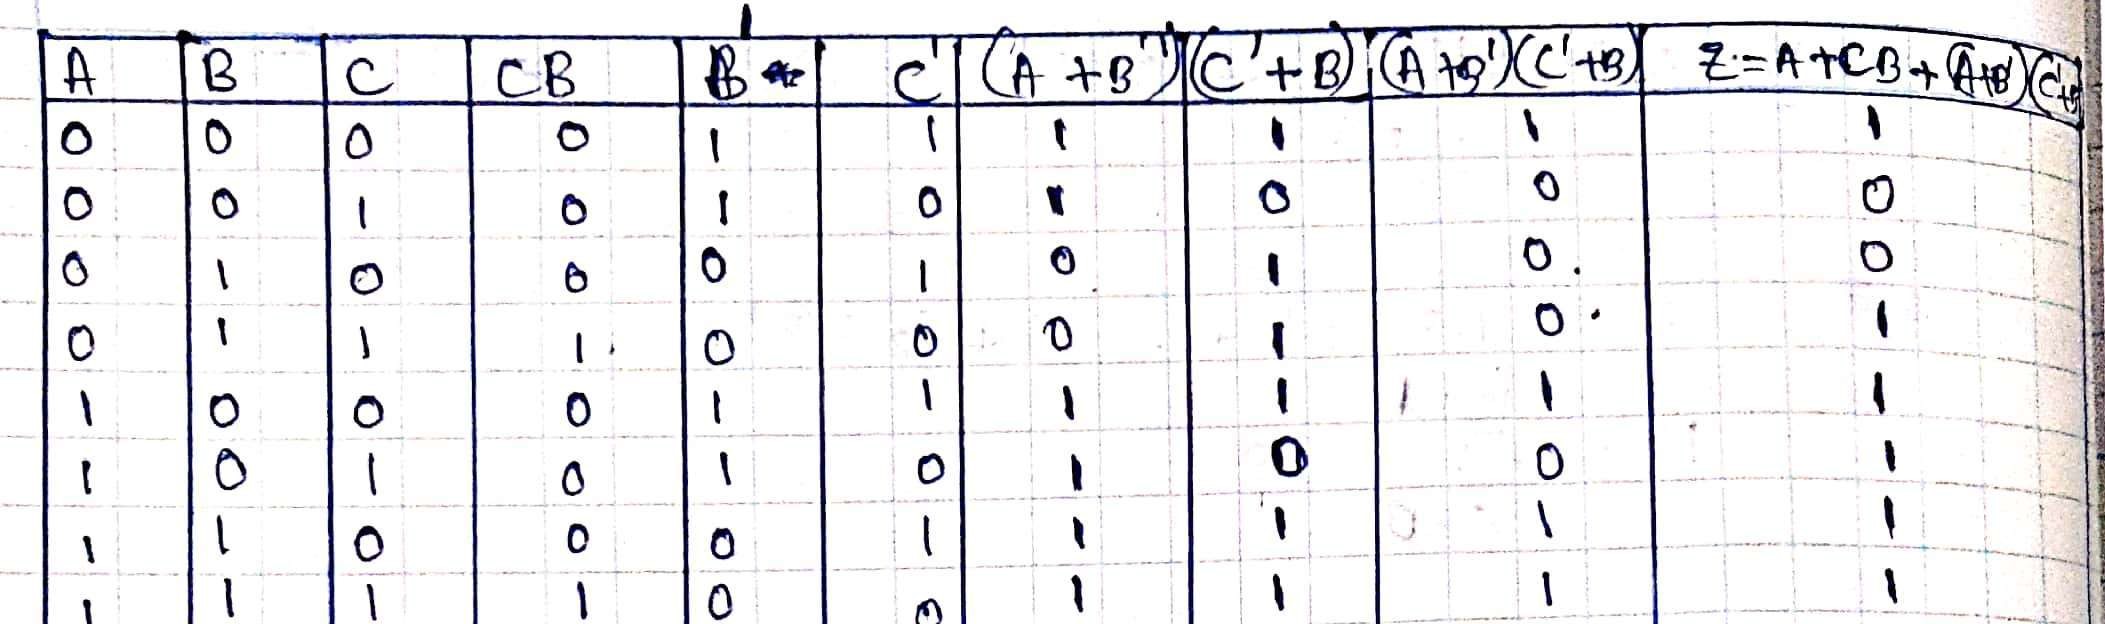 A B C CB B' C' (A+B') (C'+B) (A+B')(C'+B) Z=A+CB+(A+B')(C'+B)
0 0 0 0 1 1 1 1 1 1
0 0 1 0 1 0 1 0 0 0
0 1 0 0 0 1 0 1 0 0
0 1 1 1 0 0 0 1 0 1
1 0 0 0 1 1 1 1 1 1
1 0 1 0 1 0 1 0 0 1
1 1 0 0 0 1 1 1 1 1
1 1 1 1 0 0 1 1 1 1